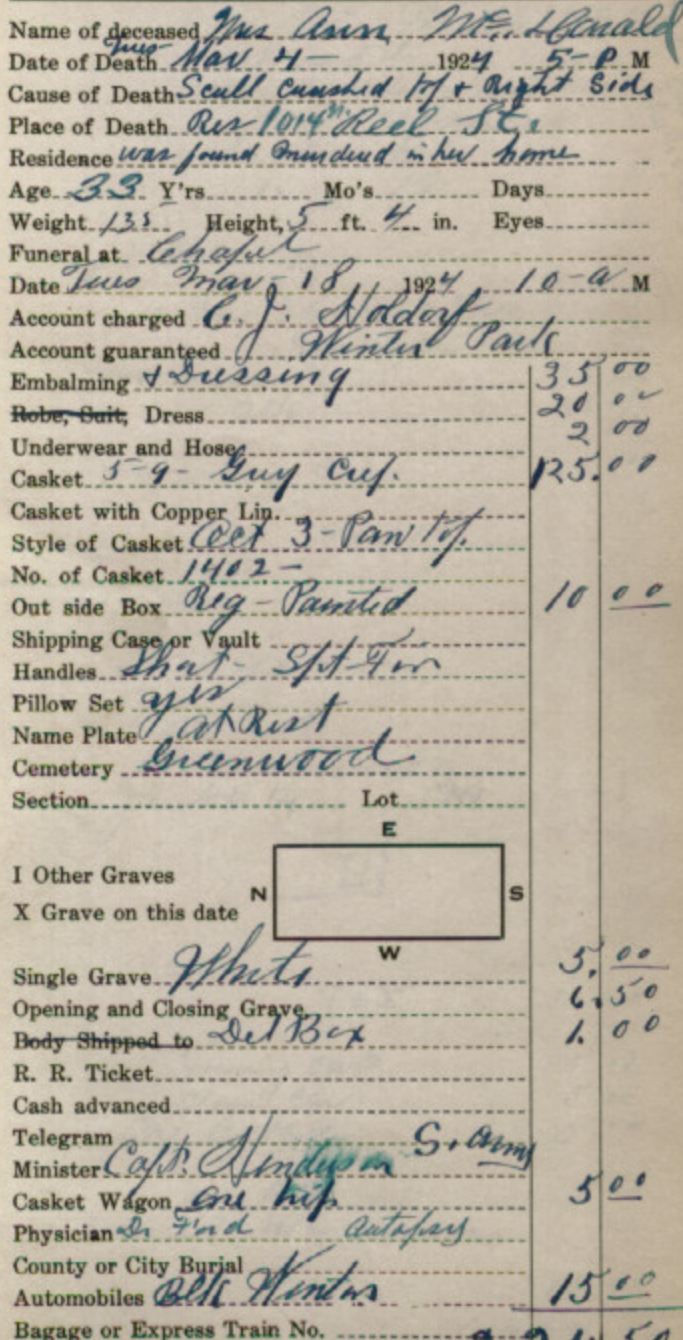 Name of deceased Mrs Ann McDonald
Date of Death Tues Mar 4 - 1924 5-P M
Cause of Death Scull caushed top + Right Side
Place of Death Res 1014 Reel St.
Residence was found murdered in her home
Age 33 Y'rs Mo's Days
Weight 135 Height, 5 ft. 4 in. Eyes
Funeral at Chapel
Date Tues Mar - 18 1924 10-a M
Account charged C. J. Holdorf
Account guaranteed Winter Park
Embalming & Dressing 35 00
Robe, Suit, Dress 20 00
Underwear and Hose 2 00
Casket 5-9- Gray Crep. 125.00
Casket with Copper Lin.
Style of Casket Oct 3-Pan top.
No. of Casket 1402-
Out side Box Reg - Painted 10 00
Shipping Case or Vault
Handles Shat-
Pillow Set yes
Name Plate at Rest
Cemetery Greenwood
Section Lot
E
I Other Graves
N S
X Grave on this date
W
Single Grave White 5.00
Opening and Closing Grave 6.50
Body Shipped to Del Box 1.00
R. R. Ticket
Cash advanced
Telegram
Minister Capt. Henderson S. army
Casket Wagon one trip 5 00
Physician Dr Ford autopsy
County or City Burial
Automobiles Blk Winton 15 00
Bagage or Express Train No.